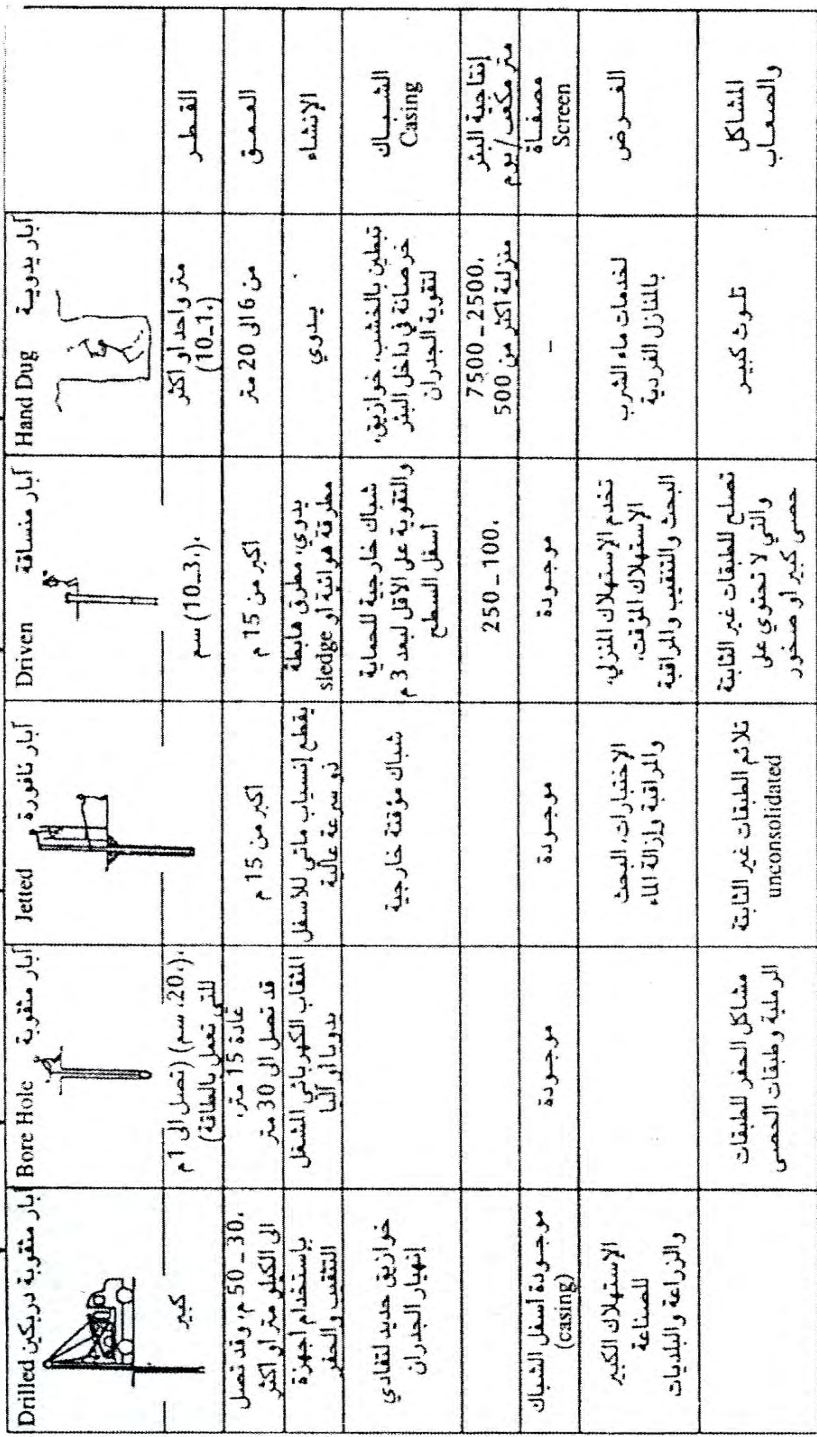 القطر
العمق
الإنشاء
الشباك
Casing
إنتاجية البئر
متر مكعب / يوم
مصفاة
Screen
الغرض
المشاكل
والصعاب
آبار يدوية Hand Dug
متر واحد او اكثر
(10_1.)
من 6 الى 20 متر
يدوي
تبطين بالخشب، خوازيق،
خرصانة في داخل البئر
لتقوية الجدران
7500 _ 2500.
منزلية اكثر من 500
_
لخدمات ماء الشرب
بالمنازل الفردية
تلوث كبير
آبار منساقة Driven
(10_3.). سم
اكبر من 15 م
يدوي، مطرق هابطة
مطرقة هوائية او sledge
شباك خارجية للحماية
والتقوية على الاقل لبعد 3 م
اسفل السطح
250 _ 100.
موجودة
تخدم الإستهلاك المنزلي،
الإستهلاك المؤقت،
البحث والتنقيب والمراقبة
تصلح للطبقات غير الثابتة
والتي لا تحتوي على
حصى كبير او صخور
آبار نافورة Jetted
اكبر من 15 م
يقطع إنسياب مائي للأسفل
ذو سرعة عالية
شباك مؤقتة خارجية
موجودة
الإختبارات، البحث
والمراقبة وإزالة الماء
تلائم الطبقات غير الثابتة
unconsolidated
آبار مثقوبة Bore Hole
(.20. سم) (تصل الى 1م
للتي تعمل بالطاقة)
عادة 15 متر،
قد تصل الى 30 متر
المثقاب الكهربائي المشغل
يدويا او آليا
موجودة
مشاكل الحفر للطبقات
الرملية وطبقات الحصى
آبار مثقوبة دريكين Drilled
كبير
50 _ 30. م، وقد تصل
الى الكلو متر او اكثر
بإستخدام اجهزة
التثقيب والحفر
خوازيق حديد لتفادي
إنهيار الجدران
موجودة اسفل الشباك
(casing)
الإستهلاك الكبير
للصناعة
والزراعة والبلديات